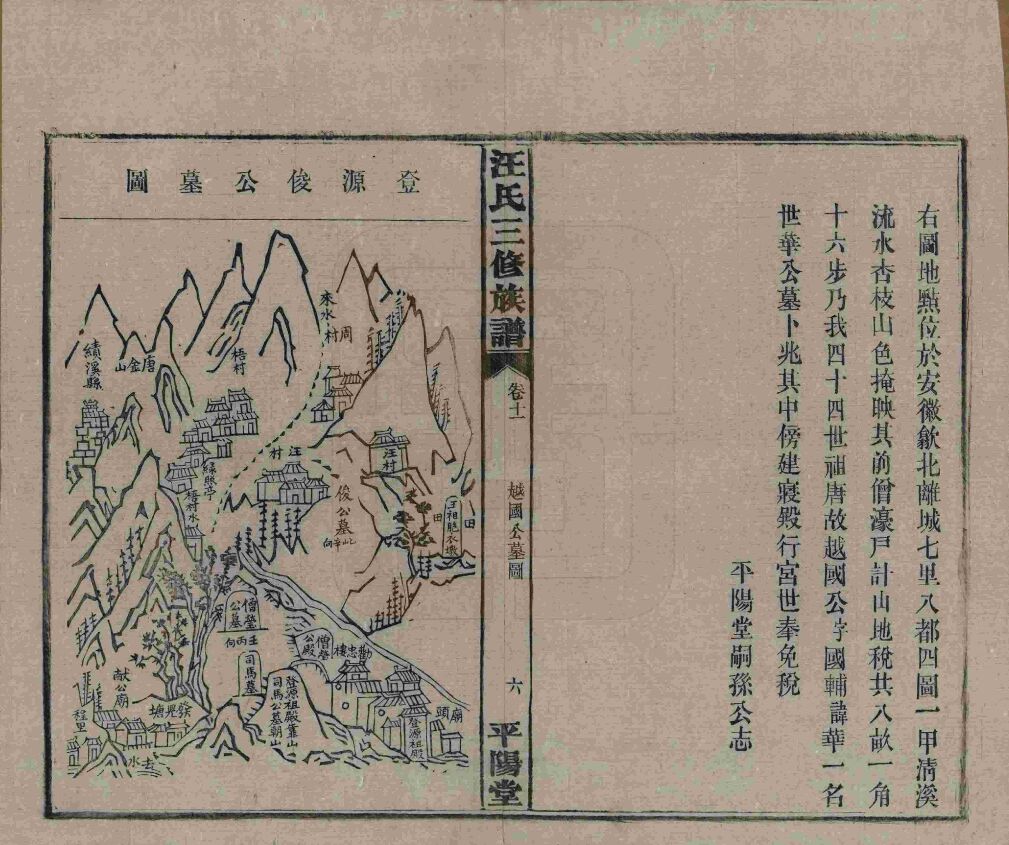 右圖地點位於安徽歙北離城七里八都四圖一甲清溪
流水杏枝山色掩映其前僧濠戶計山地稅共八畝一角
十六步乃我四十四世祖唐故越國公字國輔諱華一名
世華公墓卜兆其中傍建寢殿行宮世奉免稅
平陽堂嗣孫公志
汪氏三修族譜
卷十一
越國公墓圖
六
平陽堂
登源俊公墓圖
來水
周村
梧村
唐金山
績溪縣
汪村
汪村
綠照亭
梧村水
俊公墓
田
田
王祖胞衣墩
僧瑩公墓
壬丙向
司馬墓
僧瑩公殿
勸忠樓
登源祖殿靠山
司馬公墓朝山
登源祖殿
廟頭
獻公廟
程里
去水